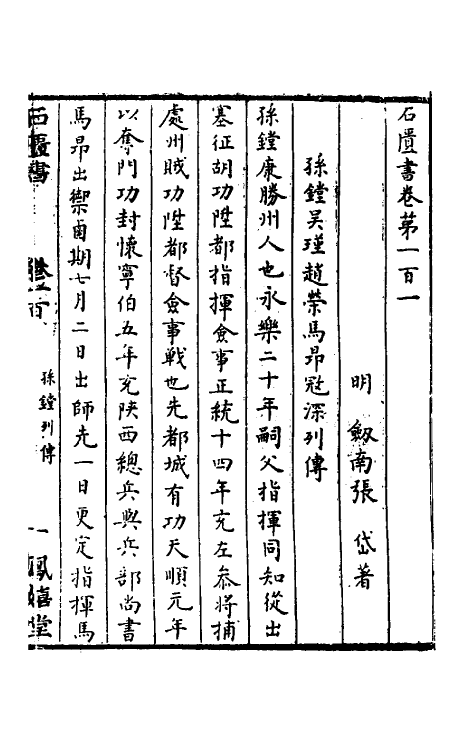 石匱書卷第一百一
明 劔南張 岱著
孫鏜吳瑾趙榮馬昂冦深列傳
孫鏜康勝州人也永樂二十年嗣父指揮同知從出
塞征胡功陞都指揮僉事正統十四年充左叅將捕
處州賊功陞都督僉事戰也先都城有功天順元年
以奪門功封懷寧伯五年充陝西總兵與兵部尚書
馬昂出禦甭期七月二日出師先一日更定指揮馬
石匱書
孫鏜列傳
一
鳳嬉堂